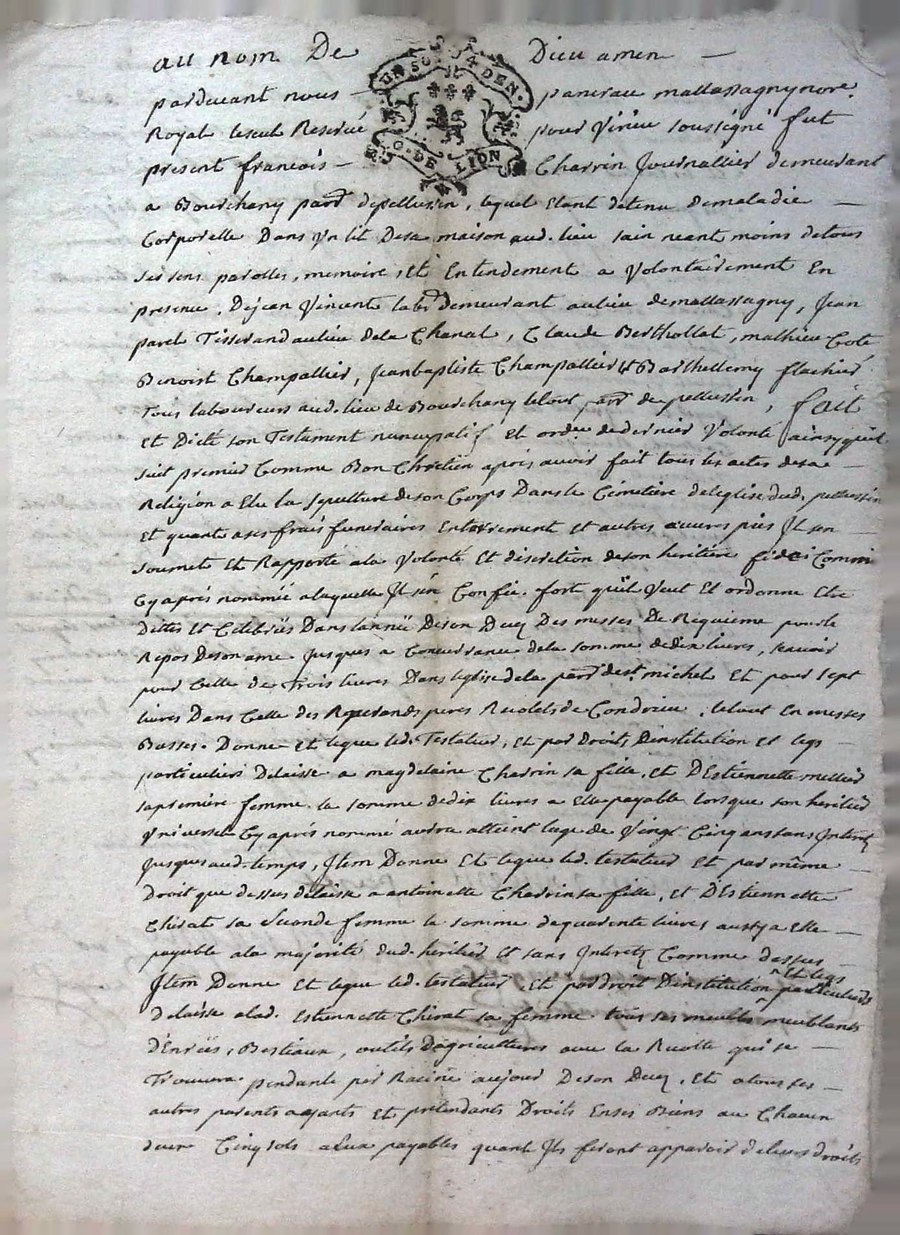 au nom De Dieu amen
UN SOL 4 DEN.
G. DE LION
pardevant nous pancrace mallassagny nore.
Royal seul Reservé pour Virieu soussigné fut
present francois Charrin Journallier demeurant
a Bourchany parr. de pellussin, lequel etant detenu de maladie
Corporelle Dans Un lit De sa maison aud. lieu sain neant moins de tous
ses sens parolles, memoire, et Entendement a Volontairement En
presence, De jean Vincent labr. demeurant au lieu de mallassagny, Jean
paret Tisserand au lieu de la Chanal, Claude Berthollat, mathieu Cote
Benoist Champallier, Jean baptiste Champallier et Barthellemy flachier
Tous laboureurs aud. lieu de Bourchany le tout parr. de pellussin, fait
Et Dicté son Testament nuncupatif Et ordce. de dernier Volonté ainsy quil
suit premier Comme Bon Chrétien aprés avoir fait tous les actes de sa
Religion a Elu la sepulture de son Corps Dans le Cémetiére de leglise dud. pellussin
Et quants a ses frais funeraires Enterrement et autres œuvres pies Il s'en
soumet Et Rapporte a la Volonté Et discretion de son heritiére fidei Commis
Cy aprés nommée a laquelle Il s'en Confie. fort qu'il Veut Et ordonne Etre
Dittes Et Celebrées Dans lannée De son Decez Des messes De Requieme pour le
Repos De son ame Jusques a Concurrance de la somme de dix livres, scavoir
pour Celle de trois livres Dans leglise de la parr. de st. michel Et pour sept
livres Dans Celle des Reverands peres Recolets de Condrieu, le tout En messes
Basses. Donne Et legue led. Testateur, Et par Droits D'institution Et legs
particuliers Delaisse a magdelaine Charrin sa fille, et D'Estiennette mellier
sa premiére femme la somme de dix livres a Elle payable lorsque son heritier
Vniversel Cy aprés nommé aurra atteint lage de Vingt Cinq ans sans Interets
Jusques aud. temps, Item Donne Et legue led. testateur Et par même
Droit que dessus delaisse a antoinette Charrin sa fille, et D'Estiennette
Chirat sa seconde femme la somme de quarente livres aussy a Elle
payable a la majorité dud. heritier Et sans Interetz Comme dessus
Item Donne Et legue led. testateur, Et par droit D'institution et legs particuliers
Delaisse a lad. Estiennette Chirat sa femme tous ses meubles meublants
Denrées, Bestiaux, outils D'agricultures avec la Recolte qui se
Trouvera pendante par Racine au jour De son Decez, Et a tous ses
autres parents ayants Et pretendants Droits En ses Biens au Chacun
deux Cinq sols a Eux payables quant Ils feront apparoir de leurs droits